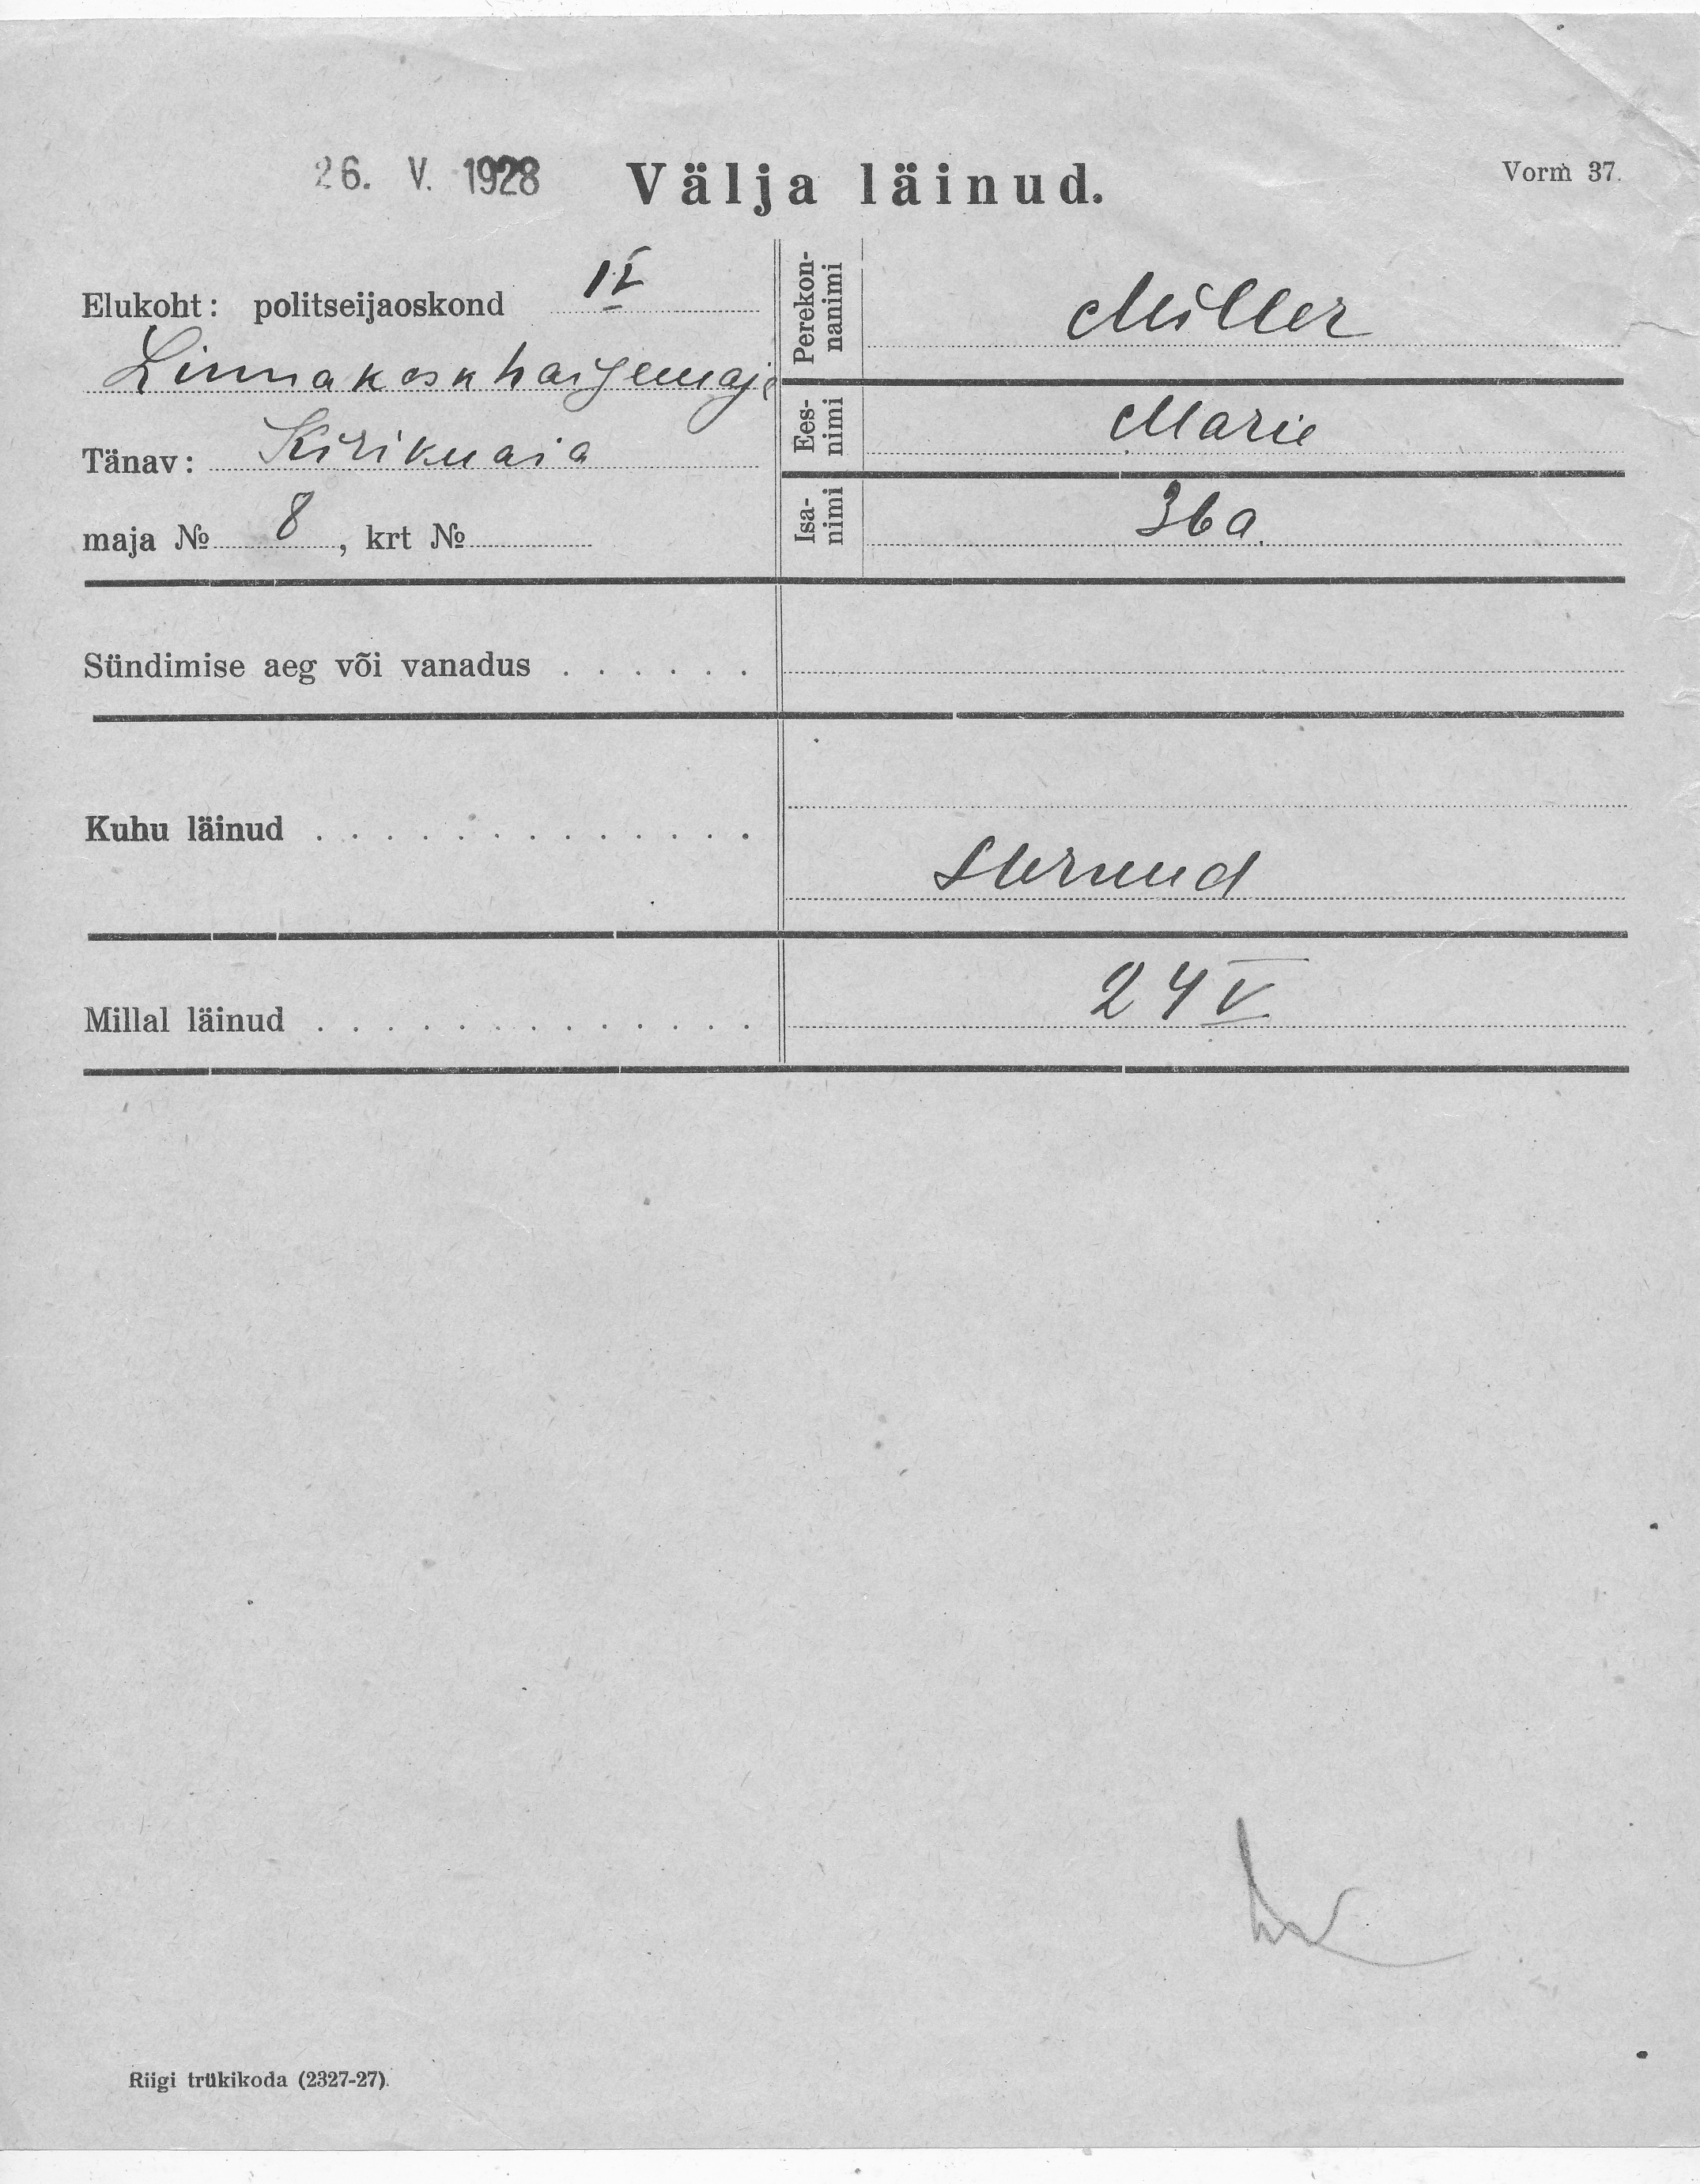 26. V. 1928 Välja läinud. Vorm 37.
Elukoht: politseijaoskond
Linnakeskhaigemaja
Tänav: Kirikuaia
maja № 8, krt №
Perekon-
nanimi
Miller
Ees-
nimi
Marie
Isa-
nimi
36a.
Sündimise aeg või vanadus . . . . . .
Kuhu läinud . . . . . . . . . . . . . .
Surnud
Millal läinud . . . . . . . . . . . . . . 24 V
Riigi trükikoda (2327-27).